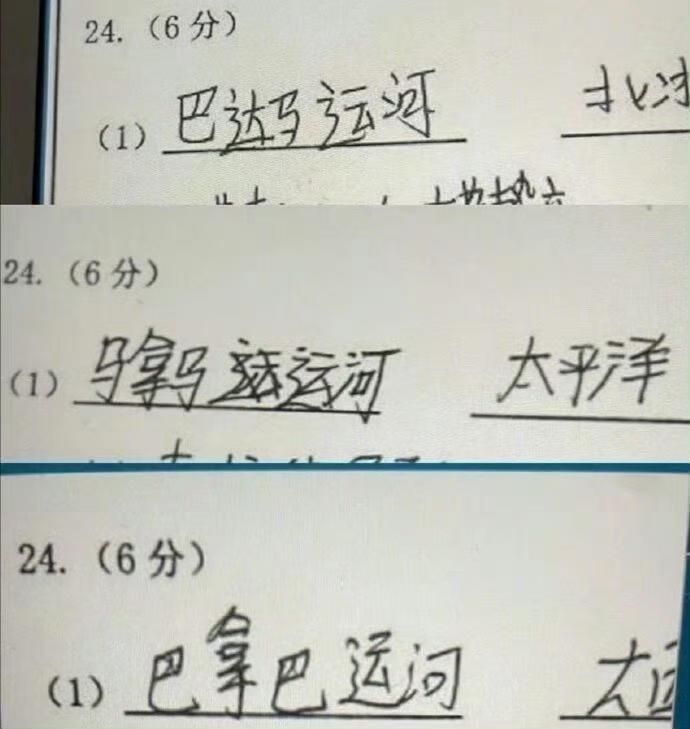 24.（6分）
（1）巴达马运河
24.（6分）
（1）马拿马运河 太平洋
24.（6分）
（1）巴拿巴运河